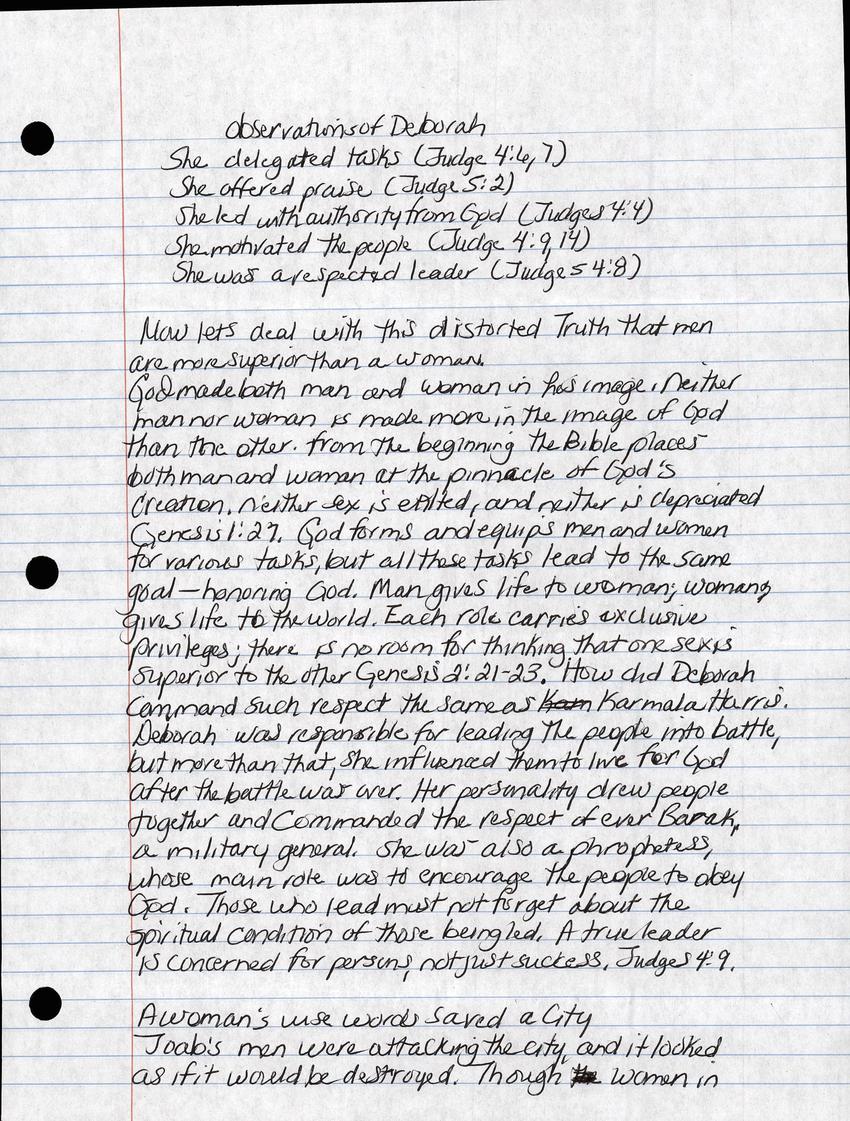 observations of Deborah
She delegated tasks (Judge 4:6,7)
She offered praise (Judge 5:2)
She led with authority from God (Judges 4:4)
She motivated the people (Judge 4:9,14)
She was a respected leader (Judges 4:8)
Now lets deal with this distorted Truth that men
are more superior than a woman.
God made both man and woman in his image. Neither
man nor woman is made more in the image of God
than the other. from the beginning the Bible places
both man and woman at the pinnacle of God's
Creation. Neither sex is exalted, and neither is depreciated
Genesis 1:27. God forms and equips men and women
for various tasks, but all these tasks lead to the same
goal—honoring God. Man gives life to woman; woman
gives life to the world. Each role carries exclusive
privileges; there is no room for thinking that one sex is
superior to the other Genesis 2:21-23. How did Deborah
Command such respect the same as Karmala Harris.
Deborah was responsible for leading the people into battle,
but more than that, she influenced them to live for God
after the battle was over. Her personality drew people
together and Commanded the respect of ever Barak,
a military general. She was also a phrophetess,
whose main role was to encourage the people to obey
God. Those who lead must not forget about the
spiritual condition of those being led. A true leader
is concerned for persons, not just success. Judges 4:9.
A woman's wise words saved a City
Joab's men were attacking the city, and it looked
as if it would be destroyed. Though women in